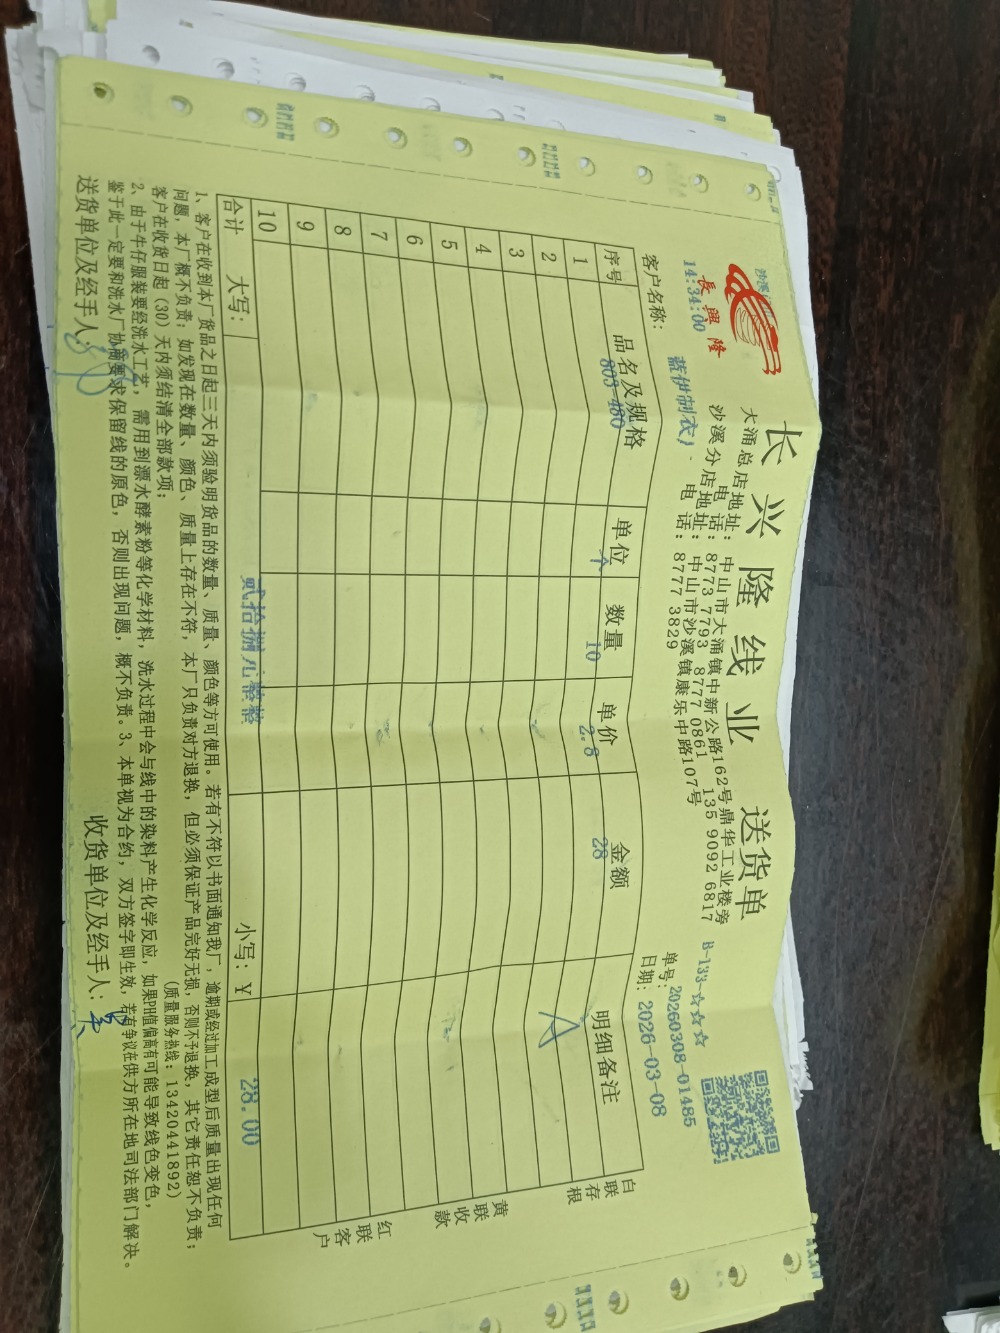 长兴隆线业 送货单
長興隆
14:34:00
大涌总店地址: 中山市大涌镇中新公路162号鼎华工业楼旁
电话: 8773 7793 8777 0861 135 9092 6817
沙溪分店地址: 中山市沙溪镇康乐中路107号
电话: 8777 3829
B-133-☆☆☆
单号: 20260308-01485
日期: 2026-03-08
客户名称: 蓝伊制衣
序号 品名及规格 单位 数量 单价 金额 明细备注
1 803-480 个 10 2.8 28
2 A
3
4
5
6
7
8
9
10
合计 大写: 贰拾捌元整 小写: ¥ 28.00
白联存根
黄联收款
红联客户
1、客户在收到本厂货品之日起三天内须验明货品的数量、质量、颜色等方可使用。若有不符以书面通知我厂,逾期或经过加工成型后质量出现任何
问题,本厂概不负责;如发现在数量、颜色、质量上存在不符,本厂只负责对方退换,但必须保证产品完好无损,否则不予退换,其它责任恕不负责;
客户在收货日起(30)天内须结清全部款项; (质量服务热线:13420441892)
2、由于牛仔服装要经洗水工艺,需用到漂水酵素粉等化学材料,洗水过程中会与线中的染料产生化学反应,如果PH值偏高有可能导致线色变色,
鉴于此一定要和洗水厂协商要求保留线的原色,否则出现问题,概不负责。3、本单视为合约,双方签字即生效,若有争议在供方所在地司法部门解决。
送货单位及经手人: 收货单位及经手人: